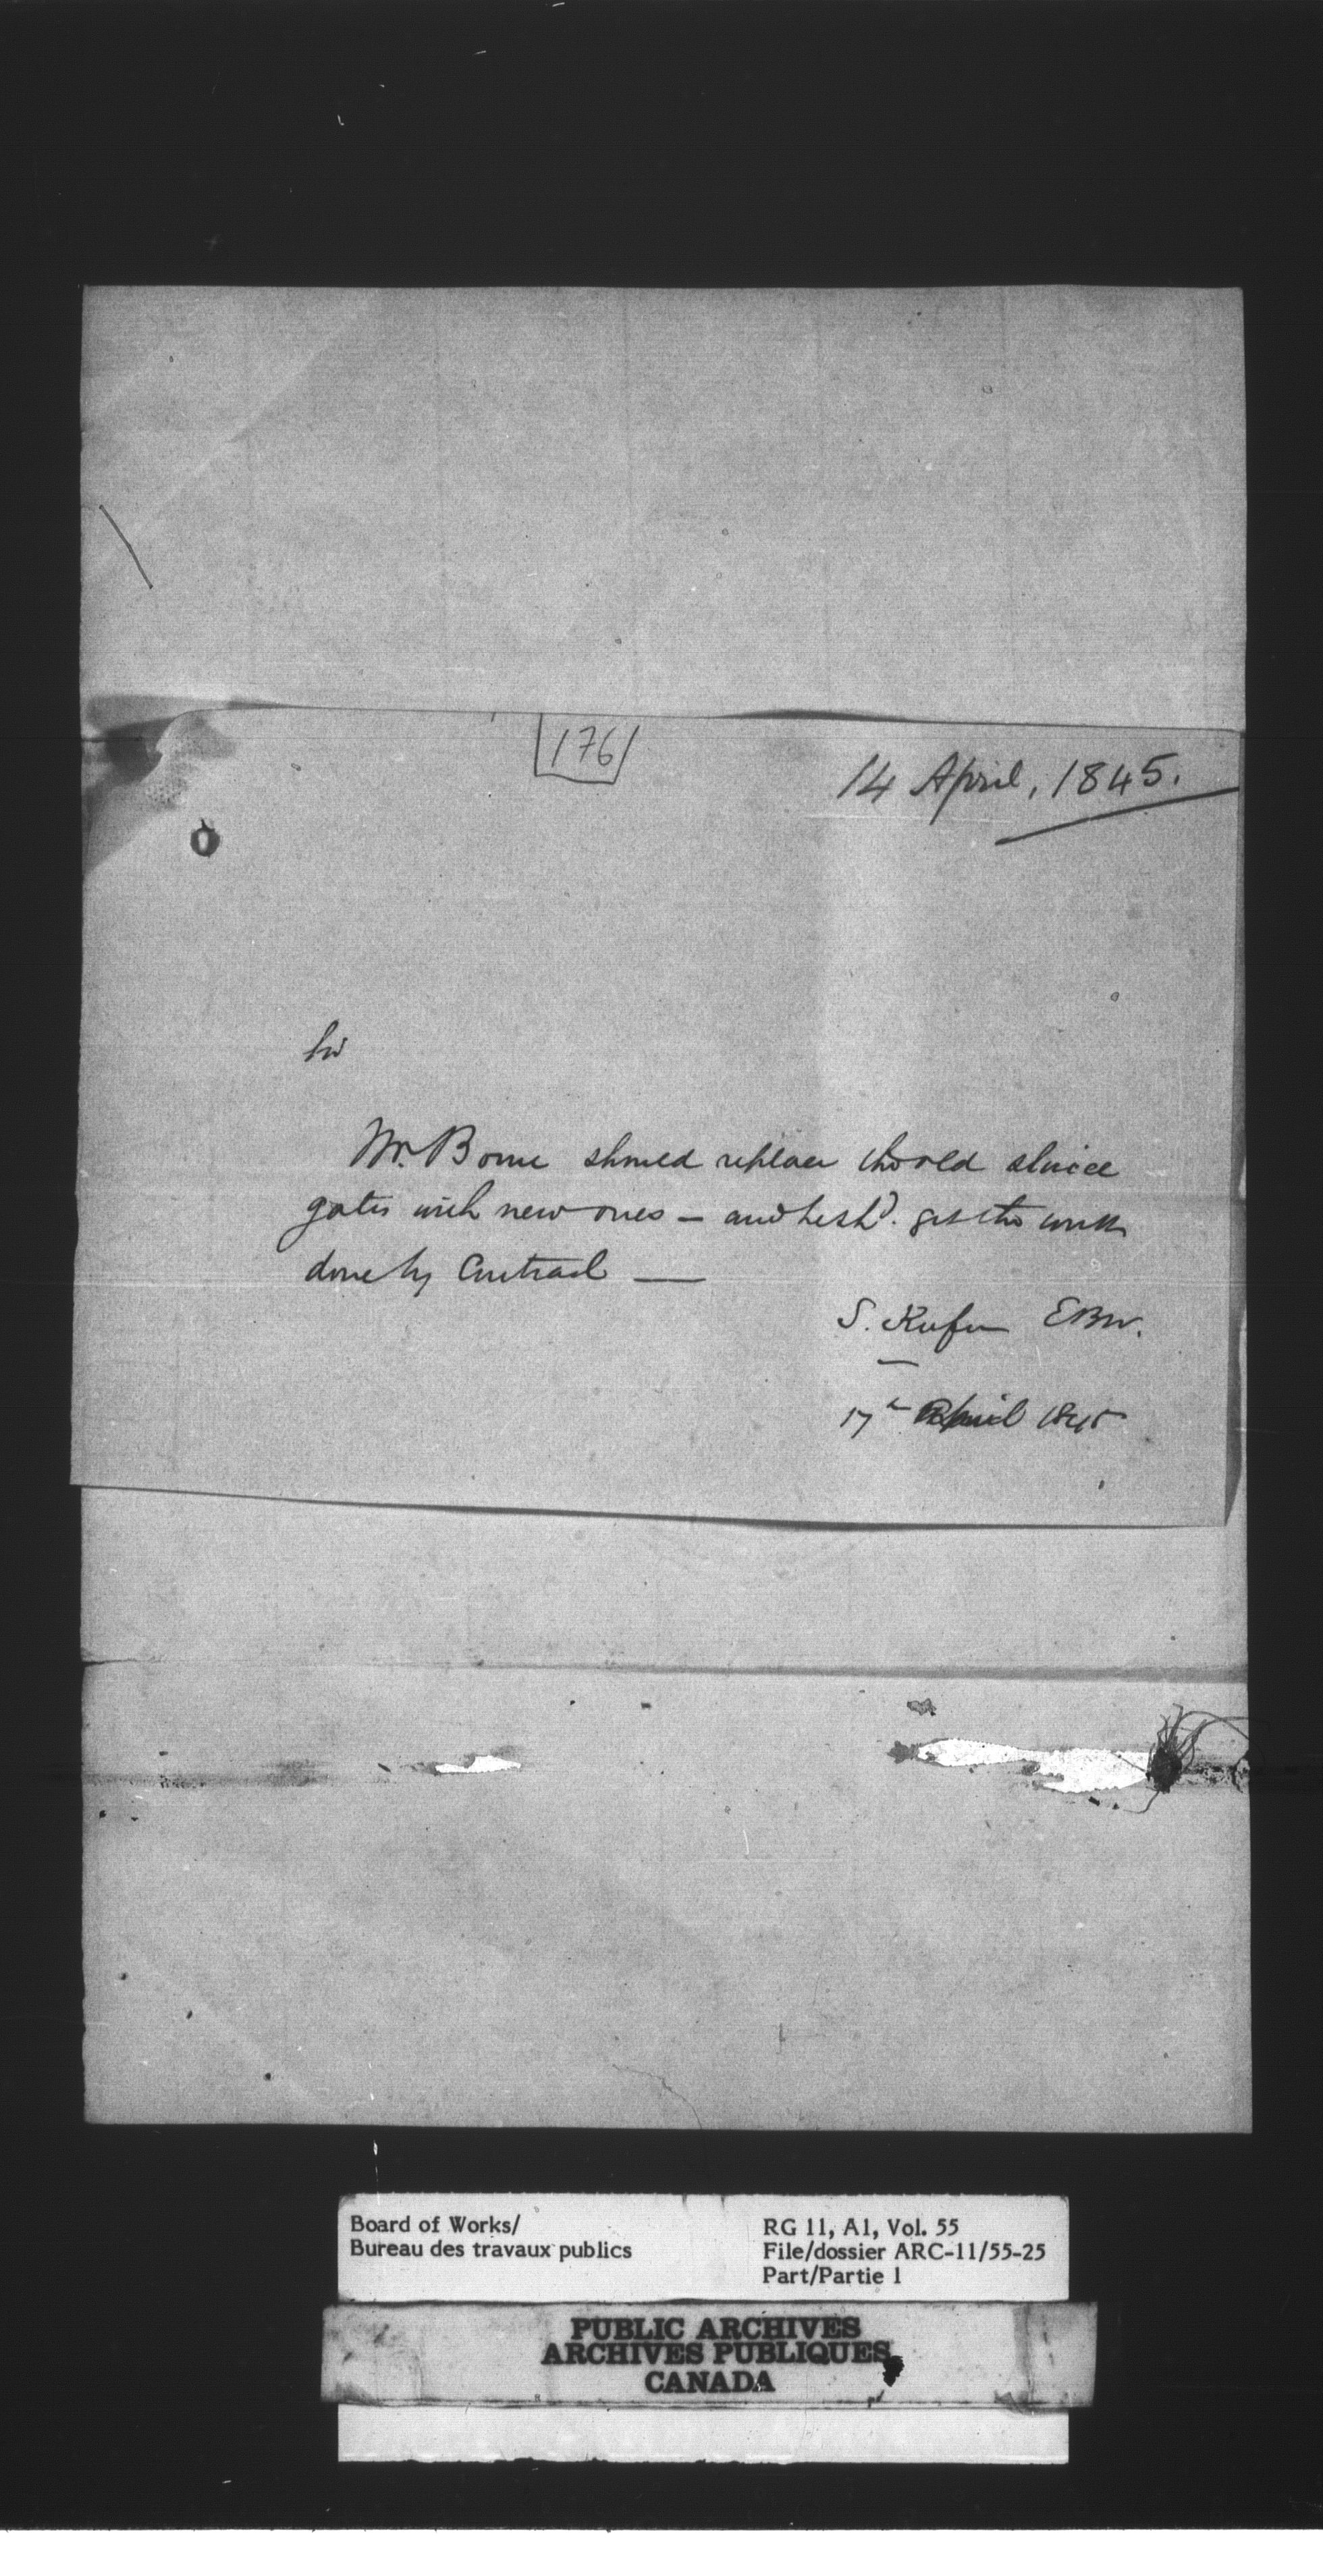 176
14 April, 1845.
Sir
Mr. Bowie should replace the old sluice
gates with new ones — and he sh.d get the work
done by Contract —
S. Keefer EBW.
17th April 1845
Board of Works/
Bureau des travaux publics
RG 11, A1, Vol. 55
File/dossier ARC-11/55-25
Part/Partie 1
PUBLIC ARCHIVES
ARCHIVES PUBLIQUES
CANADA